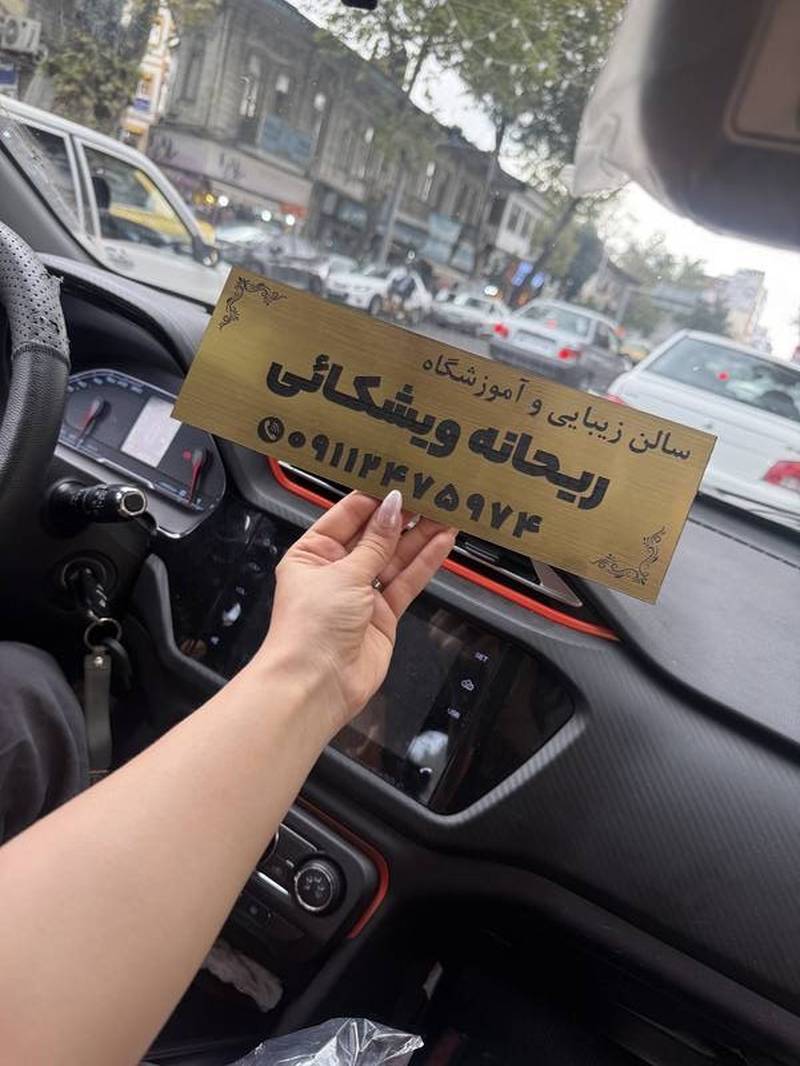 سالن زیبایی و آموزشگاه
ریحانه ویشکائی
۰۹۱۱۲۴۷۵۹۷۴
SET
USB